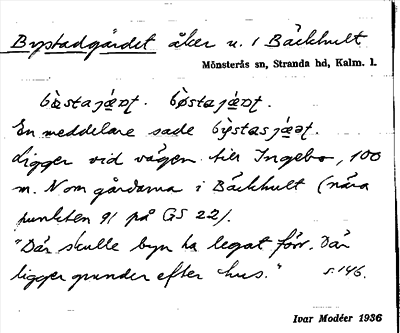 Bystadgärdet åker u. 1 Bäckhult
Mönsterås sn, Stranda hd, Kalm. l.
En meddelare sade
Ligger vid vägen till Ingebo, 100
m. N om gårdarna i Bäckhult (nära
punkten 91 på GS 22).
"Där skulle byn ha legat förr. Där
ligger grunder efter hus." s. 146.
Ivar Modéer 1936